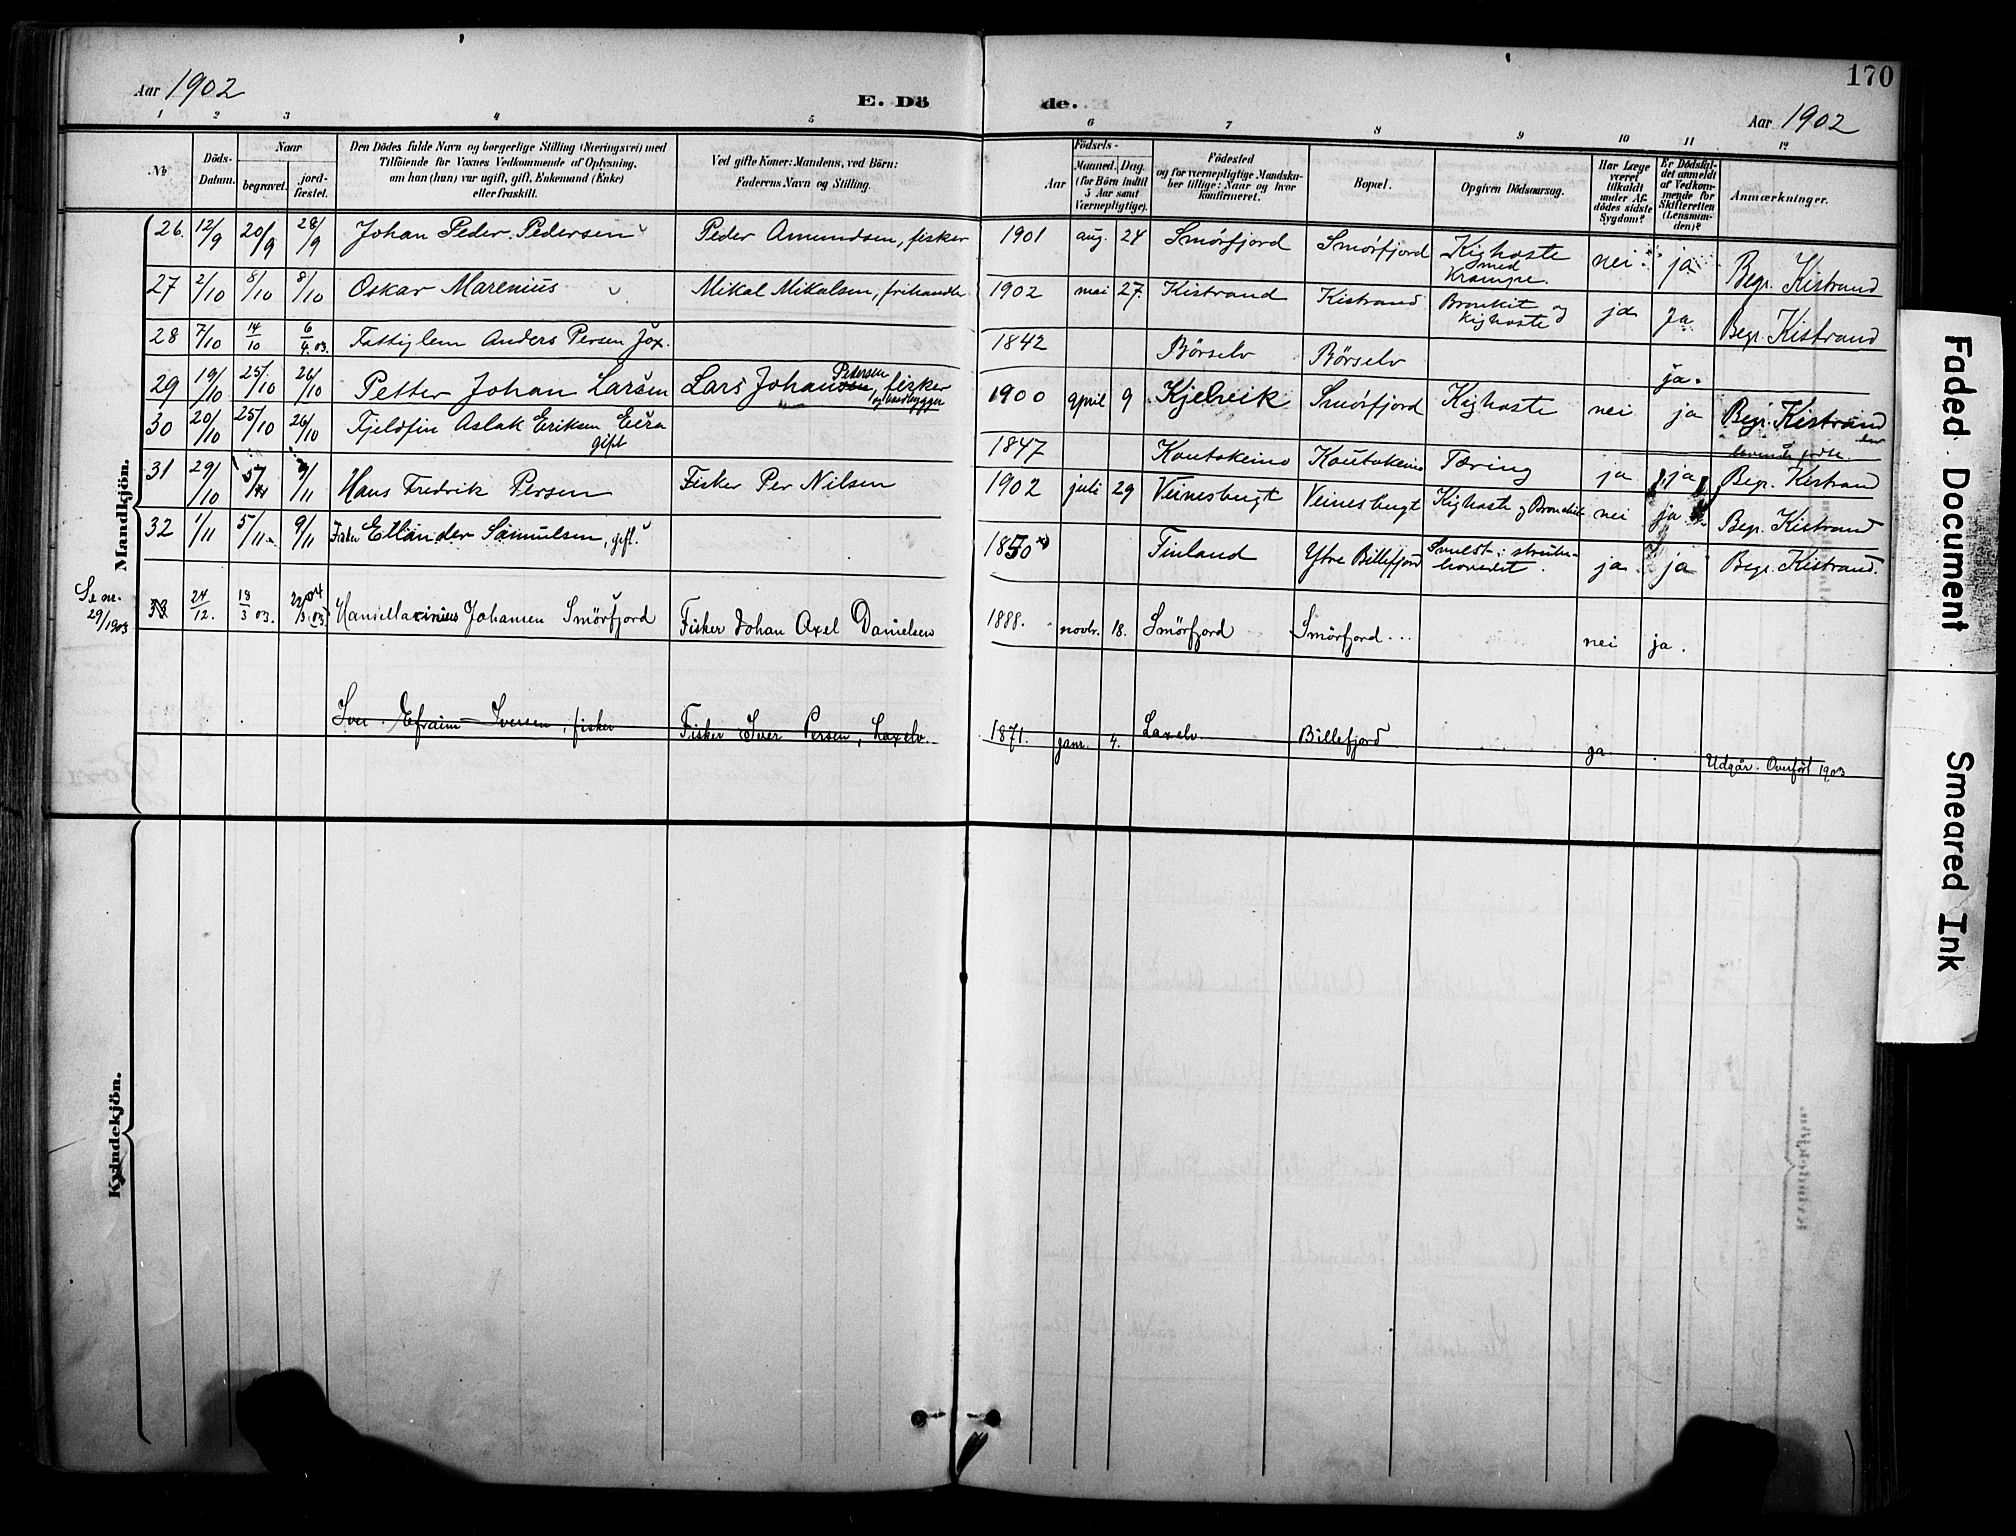 170
Aar 1902
E. Döde.
Aar 1902
1 2 3 4 5 6 7 8 9 10 11 12
No
Döds-Datum.
Naar
begravet.
jord-fæstet.
Den Dödes fulde Navn og borgerlige Stilling (Næringsvei) med
Tilföiende for Voxnes Vedkommende af Oplysning,
om han (hun) var ugift, gift, Enkemand (Enke)
eller fraskilt.
Ved gifte Koner: Mandens, ved Börn:
Faderens Navn og Stilling.
Födsels-
Aar
Maaned. Dag.
(for Börn indtil
5 Aar samt
Værnepligtige).
Födested
og for værnepligtige Mandska-
ber tillige: Naar og hvor
konfirmeret.
Bopæl.
Opgiven Dödsaarsag.
Har Læge
været
tilkaldt
under Af-
dödes sidste
Sygdom?
Er Dödsfal-
det anmeldt
af Vedkom-
mende for
Skifteretten
(Lensman-
den)?
Anmærkninger.
Mandkjön.
26. 12/9 20/9 28/9 Johan Peder Pedersen Peder Amundsen, fisker 1901 aug. 24 Smørfjord Smørfjord Kighoste med Krampe. nei. ja Begr. Kistrand
27 2/10 8/10 8/10 Oskar Marenius Mikal Mikalsen, frihandler 1902 mai 27. Kistrand Kistrand Bronkit og Kighoste ja Ja Begr. Kistrand
28 7/10 14/10 6/4 03. Fattiglem Anders Persen Jox. 1842 Börselv Börselv ja.
29 19/10 25/10 26/10 Petter Johan Larsen Lars Johansen Pedersen, fisker og landbygger 1900 april 9 Kjelvik Smørfjord Kighoste nei ja Begr. Kistrand
30 20/10 25/10 26/10 Fjeldfin Aslak Eriksen Eira gift 1847 Koutokeino Koutokeino Tæring ja ja Begr. Kistrand
31 29/10 5/11 9/11 Hans Fredrik Persen Fisker Per Nilsen 1902 juli 29 Veinesbugt Veinesbugt Kighoste og Bronchit nei ja Begr. Kistrand
32 1/11 5/11 9/11 Fisker Erlander Samuelsen, gift. 1850 x) Finland Ytre Billefjord ja ja Begr. Kistrand.
Se nr. 29/1903
33 24/12. 18/3 03. Hans Marinius Johansen Smörfjord Fisker Johan Axel Danielsen 1888. novbr. 18. Smörfjord Smörfjord nei ja.
Iver Efraim Iversen, fisker Fisker Iver Persen, Laxelv. 1871. janr. 4. Laxelv Billefjord ja. Udgår. Overført 1903
Kvindekjön.
Faded Document
Smeared Ink